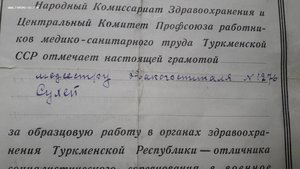 Народный Комиссариат Здравоохранения и
Центральный Комитет Профсоюза работни-
ков медико-санитарного труда Туркменской
ССР отмечает настоящей грамотой
медсестру Эвакогоспиталя № 1276
Сулей
за образцовую работу в органах здравоохра-
нения Туркменской Республики—отличника
социалистического соревнования в военное